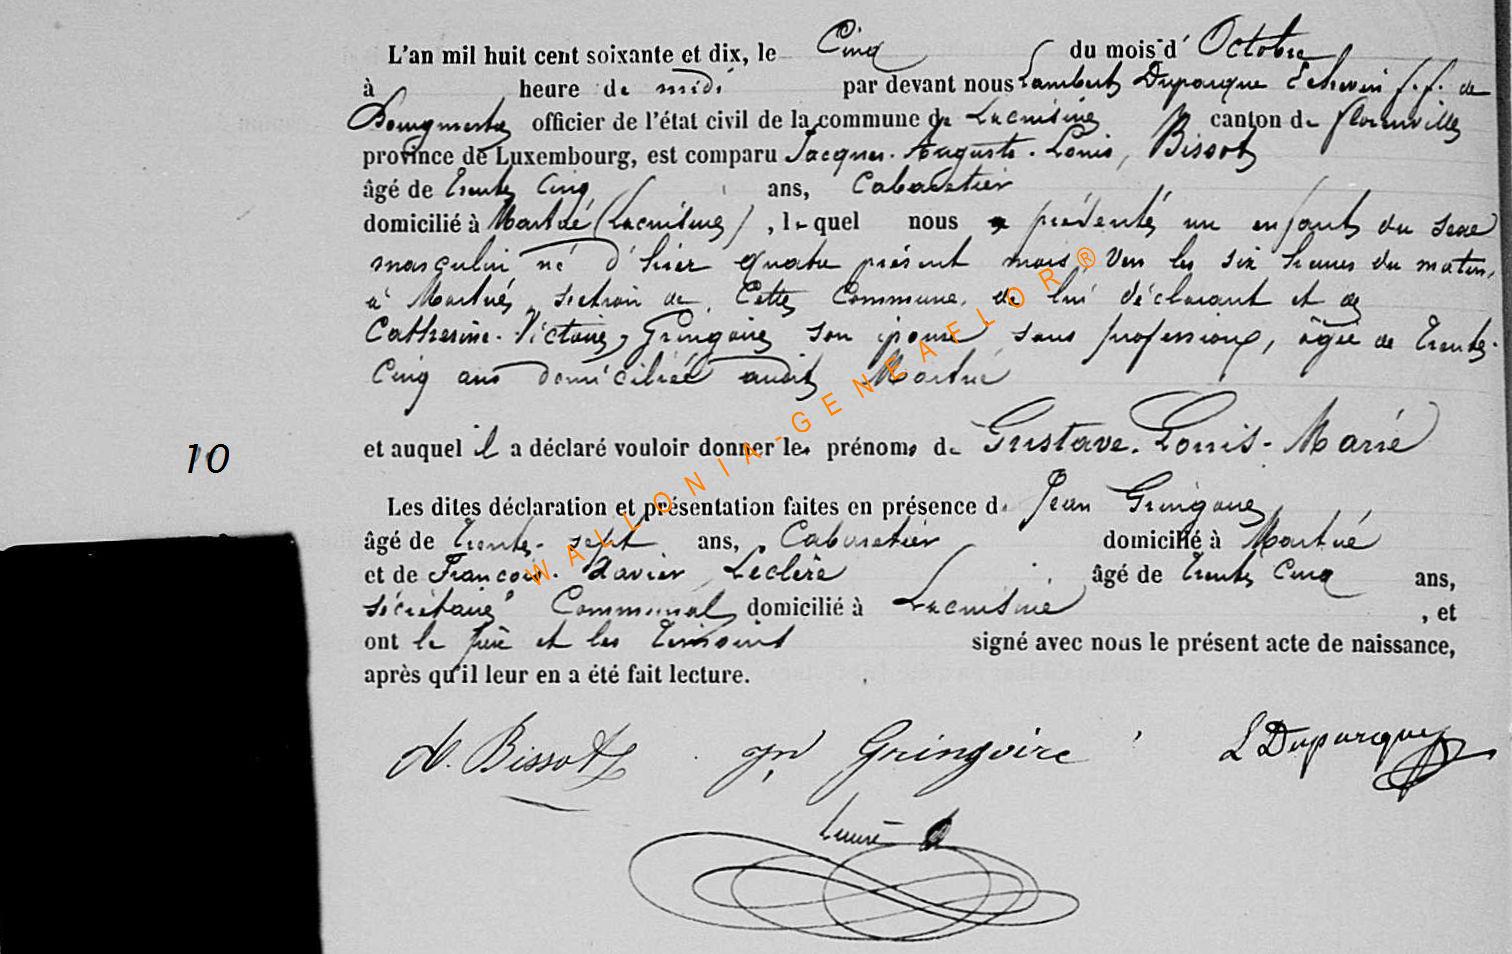 L'an mil huit cent soixante et dix, le Cinq du mois d' Octobre
à heure de midi par devant nous Lambert Duparque Echevin f.f. de
Bourgmestre officier de l'état civil de la commune de Lacuisine canton de florenville
province de Luxembourg, est comparu Jacques-Auguste-Louis, Bissot
âgé de trente cinq ans, Cabaretier
domicilié à Martué (Lacuisine) , lequel nous a présenté un enfant du sexe
masculin né d'hier quatre présent mois vers les six heures du matin,
à Martué, section de Cette Commune, de lui déclarant et de
Catherine-Victoire, Gringoire son épouse sans profession, âgée de trente-
Cinq ans domiciliée audit Martué
et auquel il a déclaré vouloir donner les prénoms de Gustave-Louis-Marie
10
Les dites déclaration et présentation faites en présence de Jean Gringoire
âgé de trente-sept ans, Cabaretier domicilié à Martué
et de François-Xavier Leclère âgé de trente Cinq ans,
sécrétaire Communal domicilié à Lacuisine , et
ont le père et les témoins signé avec nous le présent acte de naissance,
après qu'il leur en a été fait lecture.
A. Bissot Gringoire L Duparque
WALLONIA-GENEAFLOR®